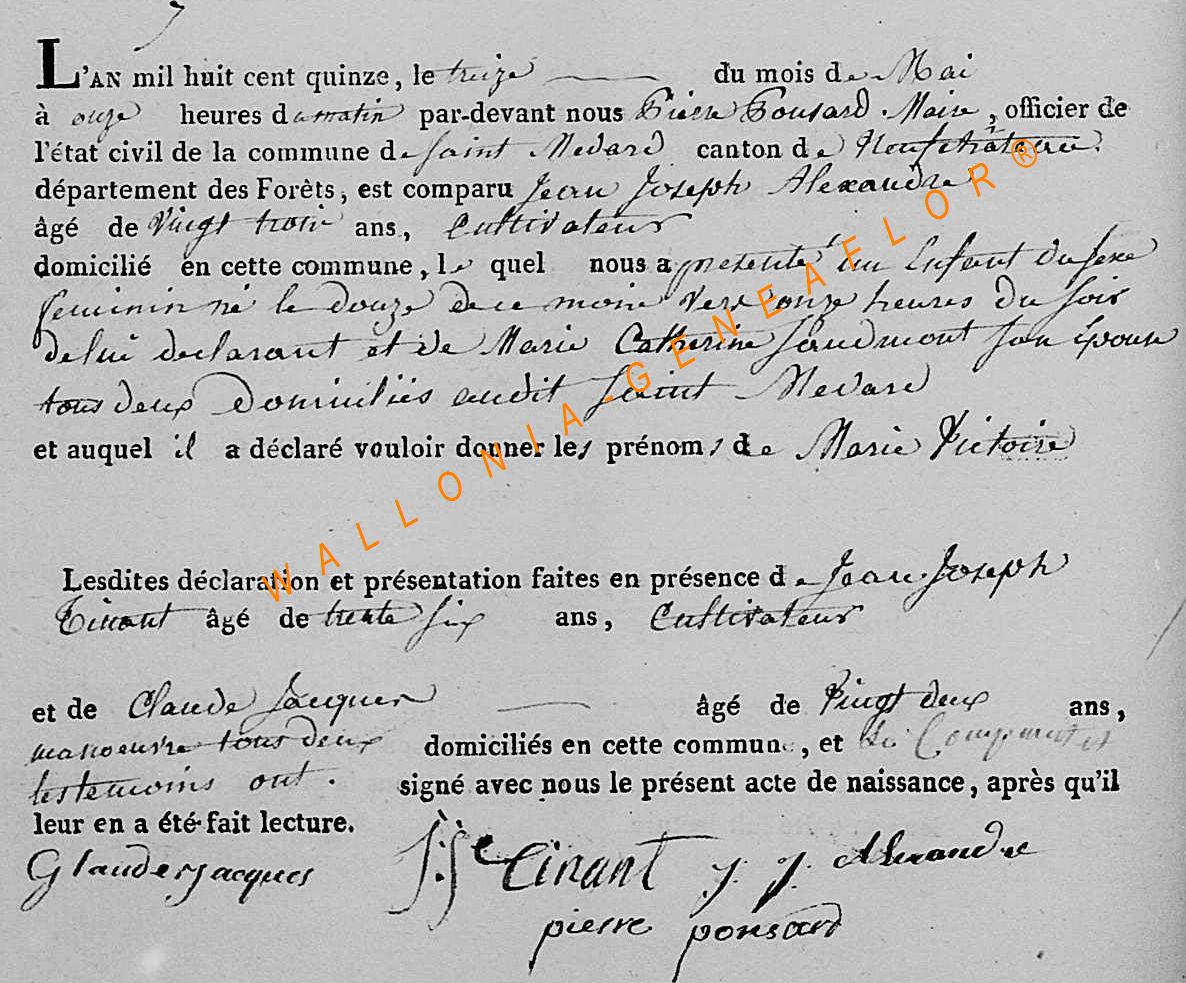 L'AN mil huit cent quinze, le treize du mois de Mai
à onze heures du matin par-devant nous Pierre Ponsard Maire, officier de
l'état civil de la commune de Saint Medard canton de Neufchâteau
département des Forêts, est comparu Jean Joseph Alexandre
âgé de Vingt trois ans, Cultivateur
domicilié en cette commune, le quel nous a présenté un Enfant du sexe
feminin né le douze de ce mois vers onze heures du soir
de lui declarant et de Marie Catherine Saudmont son Epouse
tous deux Domiciliés audit Saint Medard
et auquel il a déclaré vouloir donner les prénoms de Marie Victoire
Lesdites déclaration et présentation faites en présence de Jean Joseph
Tinant âgé de trente six ans, Cultivateur
et de Claude Jacques âgé de Vingt deux ans,
manoeuvre tous deux domiciliés en cette commune, et
les temoins ont signé avec nous le présent acte de naissance, après qu'il
leur en a été fait lecture.
Glaude Jacques J: Je Tinant J. J. Alexandre
pierre ponsard
WALLONIA-GENEAFLOR®